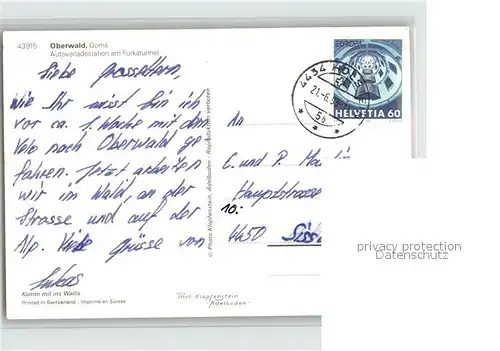 43915 Oberwald, Goms
Autoverladestation am Furkatunnel
EUROPA
HELVETIA 60
4434 HÖLS
21.-6.
5b
Liebe Grosseltern,
Wie Ihr wisst bin ich
vor ca. 1. Woche mit dem
Velo nach Oberwald ge-
fahren. Jetzt arbeiten
wir im Wald, an der
Strasse und auf der
Alp. Liebe Grüsse von
Lukas
© Photo Klopfenstein, Adelboden - Reproduktion verboten
An
C. und P.
Hauptstrasse
10.-
4450 Siss
privacy protection
Datenschutz
Komm mit ins Wallis
Printed in Switzerland - Imprimé en Suisse
Thor. Klopfenstein
Adelboden